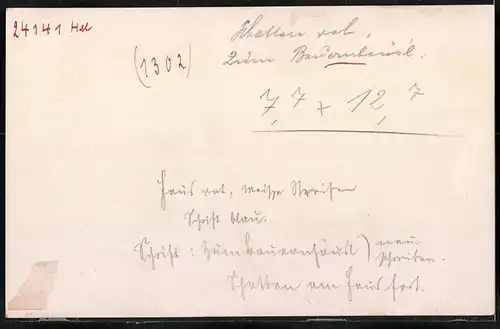 24141 Hel
(1302)
Schatten rot,
zum Bauernhäusl.
7,7 x 12,7
Haus rot, weiße Streifen
Schrift blau.
Schrift: zum Bauernhäusl) neu
schreiben.
Schatten am Haus fort.